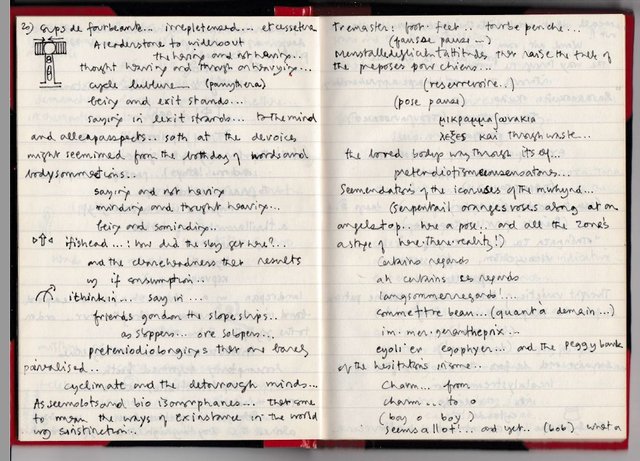 20) Cups de fourbeante... irrepletensend... et cussetera
A leaderstone to widersout
the having and not having...
thought heaving and through on heavying...
cycle lubture... (panythera)
being and exit stands...
saying in lexit strands... to the mind
and alleapasspects. soth at the devoices
might seemimed from the bothday of words and
bodysommations...
saying and not having
minding and thought having...
being and sominding..
ifishead...! How did the slog get here?...
and the cleareheadness that results
in if consumption...
ithinkin... say in...
friends gondon the slopeships..
as sloppers... are solopers...
pretendiolongings that one bares
paralised...
cyclimate and the detourough minds...
As seemslots and bio isomorphanes... that come
to mean the ways of existance in the world
ing sanstinction...
Tremaster: foot. feet... tourbe penche...
(fausse pause...)
Menstalledeficientattitudes that raise the tails of
the preposes pour chiens...
(reserrevoire..)
(pose pause)
μικραμμαζωνακια
λεξεις και through waste...
the bored bodys way through its of...
pretendiotismeensensatons...
Semendations of the iconuses of the mwhynd...
(serpentail oranges roses along at on
angelstop.. here a pose.. and all the zone's
astage of here. There reality!)
Certains regards
ah certains ses regards
langsommerregards!...
commettre beau... (quant a demain...)
im. mer. gerantheprix...
eyoli'er egophyer... and the peggy bank
of the hesitations insome...
Charm... from
charm... to o
(boy o boy)
seems allot!... and yet.. (bob) what a